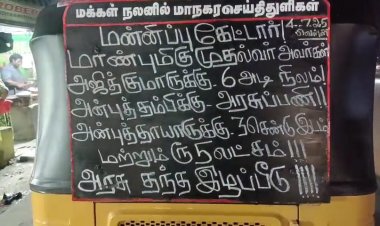 மக்கள் நலனில் மாநகரசெய்திதுளிகள்
மன்னிப்பு கேட்டார்!
4.7.25
மாண்புமிகு முதல்வர் அவர்கள்
அஜித்குமாருக்கு 6 அடி நிலம்!
அன்புத்தம்பிக்கு அரசுப்பணி!!
அன்புத்தாயாருக்கு 3 சென்டு இடம்
மற்றும் ரூ 5 லட்சம்!!!
அரசு தந்த இழப்பீடு!!!!